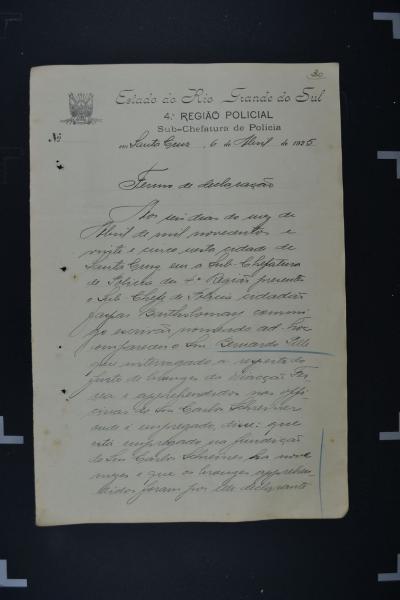 30
Estado do Rio Grande do Sul
4.ª REGIÃO POLICIAL
Sub-Chefatura de Policia
Nº
em Santa Cruz, 6 de Abril de 1925
Termo de declaração
Aos seis dias do mez de
Abril de mil novecentos e
vinte e cinco nesta cidade de
Santa Cruz em a Sub-Chefatura
de Policia da 4ª Região presente
o Sub-Chefe de Policia cidadão
Gaspar Bartholomay commi-
go escrivão nomeado ad-hoc
compareceu o Snr Bernardo
que interrogado a respeito do
furto de bronzes da Viacção Fer-
rea e apprehendidos nas offi-
cinas do Snr Carlos Schreiner
onde é empregado, disse: que
está empregado na fundição
do Snr Carlos Schreiner ha nove
mezes e que os bronzes apprehen-
didos foram por elle declarante